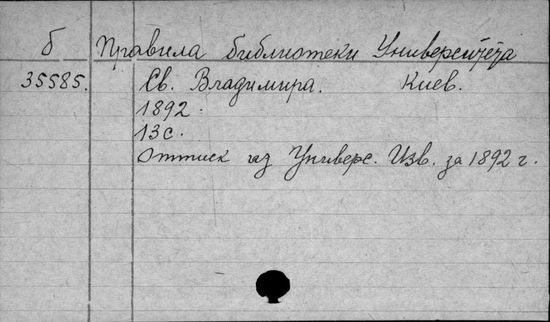 б Правила библиотеки Университета
35585. Св. Владимира. Киев.
1892.
13 с.
Оттиск из Универс. Изв. за 1892 г.